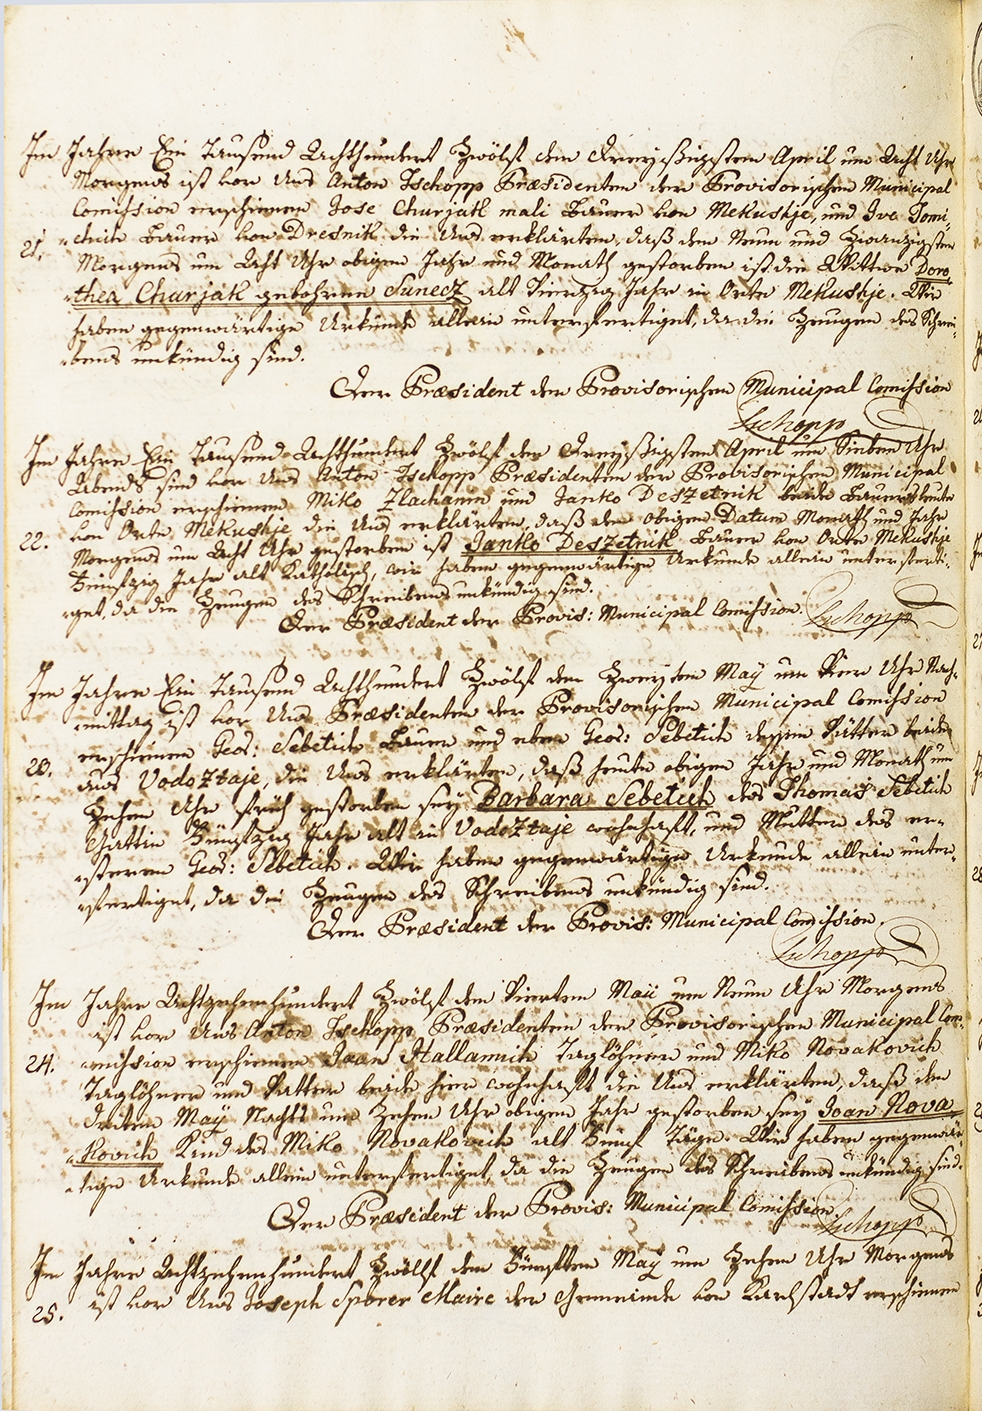 Im Jahre Ein Tausend Achthundert Zwölf den Dreyßigsten April um Acht Uhr
Morgens ist vor Uns Anton Tschopp Præsidenten der Provisorischen Municipal
Comission erschienen Jose Churjak mali Bauer von Mekushje, und Ivo Tomi-
21. chich Bauer von Dresnik die Uns erklärten, daß den Neun und Zwanzigsten
Morgens um Acht Uhr obigen Jahr und Monath gestorben ist die Wittwe Doro
thea Churjak gebohrene Sunecz alt Vierzig Jahr in Orte Mekushje. Wir
haben gegenwärtige Urkunde allein unterfertiget, da die Zeugen des Schrei-
bens unkündig sind.
Der Præsident der Provisorischen Municipal Comission
Tschopp
Im Jahre Ein Tausend Achthundert Zwölf den Dreyßigsten April um Sieben Uhr
Abends sind vor Uns Anton Tschopp Præsidenten der Provisorischen Municipal
Comission erschienen Miko Zlachanin und Janko Deszetnik beide Bauersleute
22. von Orte Mekushje die Uns erklärten, daß den obigen Datum Monath und Jahr
Morgens um Acht Uhr gestorben ist Janko Deszetnik Bauer von Orte Mekushje
Fünfzig Jahr alt Katholisch, wir haben gegenwärtige Urkunde allein unterferti-
get, da die Zeugen des Schreibens unkündig sind.
Der Præsident der Provis: Municipal Comission. Tschopp
Im Jahre Ein Tausend Achthundert Zwölf den Zweyten May um Vier Uhr Nach-
mittag ist vor Uns Præsidenten der Provisorischen Municipal Comission
erschienen Geo: Sebetich Bauer und eben Geo: Sebetich dessen Vatter beide
23. aus Vodoztaje, die Uns erklärten, daß heute obigen Jahr und Monath um
Zehen Uhr früh gestorben sey Barbara Sebetich des Thomas Sebetich
Gattin Fünfzig Jahr alt in Vodoztaje wohnhaft, und Mutter des er-
steren Geo: Sebetich. Wir haben gegenwärtige Urkunde allein unter-
fertiget, da die Zeugen des Schreibens unkündig sind.
Der Præsident der Provis: Municipal Comission.
Tschopp
Im Jahre Achtzehenhundert Zwölf den Vierten Maii um Neun Uhr Morgens
ist vor Uns Anton Tschopp Præsidenten der Provisorischen Municipal Com-
24. mission erschienen Joan Hallamich Taglöhner und Miko Novakovich
Taglöhner und Vatter beide hier wohnhaft die Uns erklärten, daß den
dritten May Nachts um Zehen Uhr obigen Jahr gestorben sey Joan Nova
kovich Kind des Miko Novakovich alt Fünf Täge. Wir haben gegenwär-
tige Urkunde allein unterfertiget, da die Zeugen des Schreibens unkündig sind.
Der Præsident der Provis: Municipal Comission
Tschopp
Im Jahre Achtzehenhundert Zwölf den Fünften May um Zehen Uhr Morgens
25. ist vor Uns Joseph Sporer Maire der Gemeinde von Karlstadt erschienen